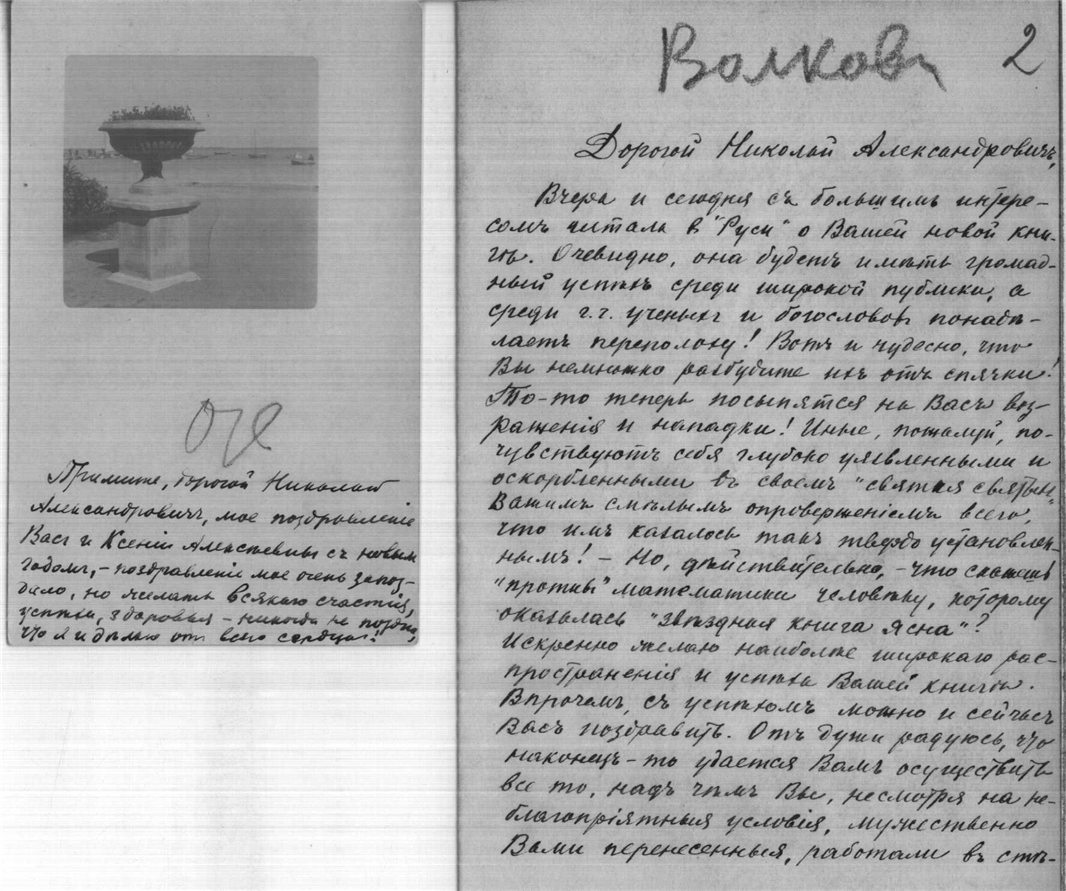 Примите, дорогой Николай
Александровичъ, мое поздравленіе
Васъ и Ксеніи Алексѣевны съ новымъ
годомъ, – поздравленіе мое очень запоз-
дало, но желать всякаго счастія,
успѣха, здоровья – никогда не поздно,
что я и дѣлаю отъ всего сердца!
Волковъ 2
Дорогой Николай Александровичъ,
Вчера и сегодня съ большимъ интере-
сомъ читалъ в "Руси" о Вашей новой кни-
гѣ. Очевидно, она будетъ имѣть громад-
ный успѣхъ среди широкой публики, а
среди г.г. ученыхъ и богослововъ понадѣ-
лаетъ переполоху! Вотъ и чудесно, что
Вы немножко разбудите ихъ отъ спячки!
То-то теперь посыпятся на Васъ воз-
раженія и нападки! Иные, пожалуй, по-
чувствуютъ себя глубоко уязвленными и
оскорбленными въ своемъ "святая святыхъ"
Вашимъ смѣлымъ опроверженіемъ всего,
что имъ казалось такъ твердо установлен-
нымъ! – Но, дѣйствительно, – что скажешь
"противъ" математики человѣку, которому
оказалась "звѣздная книга ясна"?
Искренно желаю наиболѣе широкаго рас-
пространенія и успѣха Вашей книги.
Впрочемъ, съ успѣхомъ можно и сейчасъ
Васъ поздравить. Отъ души радуюсь, что
наконецъ-то удается Вамъ осуществить
все то, надъ чѣмъ Вы, несмотря на не-
благопріятныя условія, мужественно
Вами перенесенныя, работали въ стѣ-